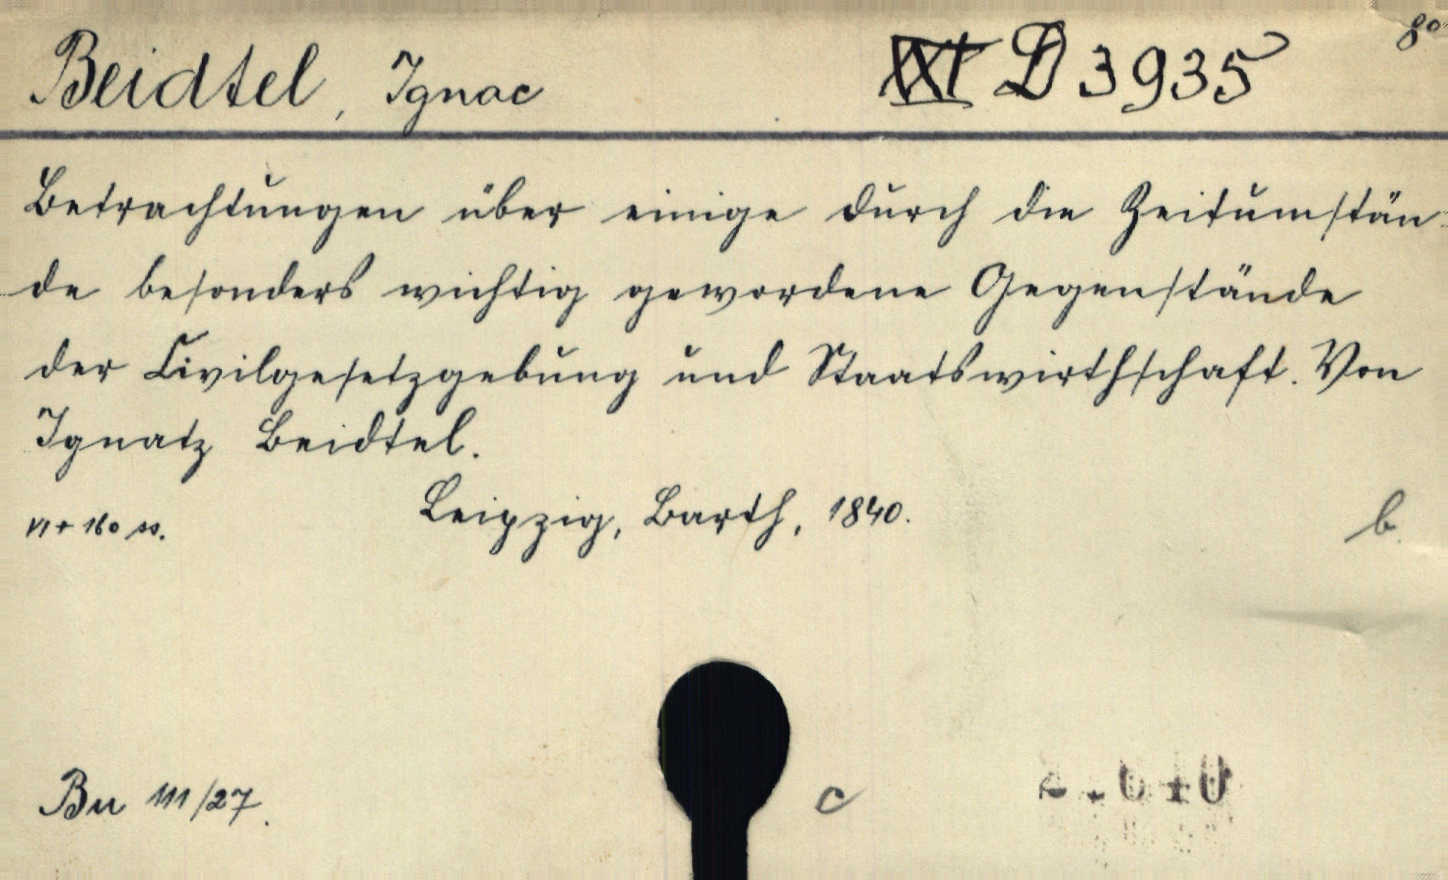 Beidtel, Ignac D 3935 8°
Betrachtungen über einige durch die Zeitumstän-
de besonders wichtig gewordene Gegenstände
der Civilgesetzgebung und Staatswirthschaft. Von
Ignatz Beidtel.
VI + 160 ss. Leipzig, Barth, 1840. b.
Bu 111/27. c